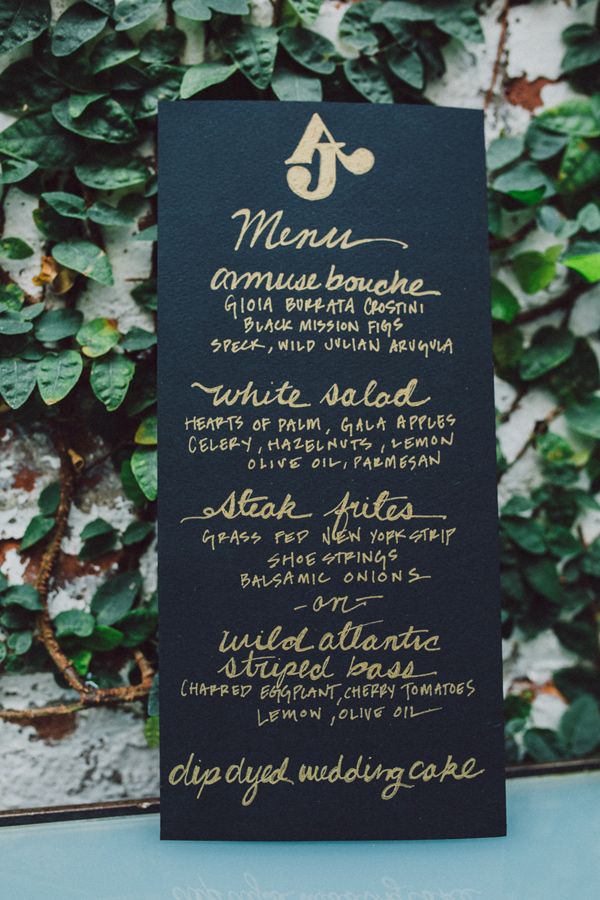 AJ
Menu
amuse bouche
GIOIA BURRATA CROSTINI
BLACK MISSION FIGS
SPECK, WILD JULIAN ARUGULA
white salad
HEARTS OF PALM, GALA APPLES
CELERY, HAZELNUTS, LEMON
OLIVE OIL, PARMESAN
steak frites
GRASS FED NEW YORK STRIP
SHOE STRINGS
BALSAMIC ONIONS
- or -
wild atlantic
striped bass
CHARRED EGGPLANT, CHERRY TOMATOES
LEMON, OLIVE OIL
dip dyed wedding cake